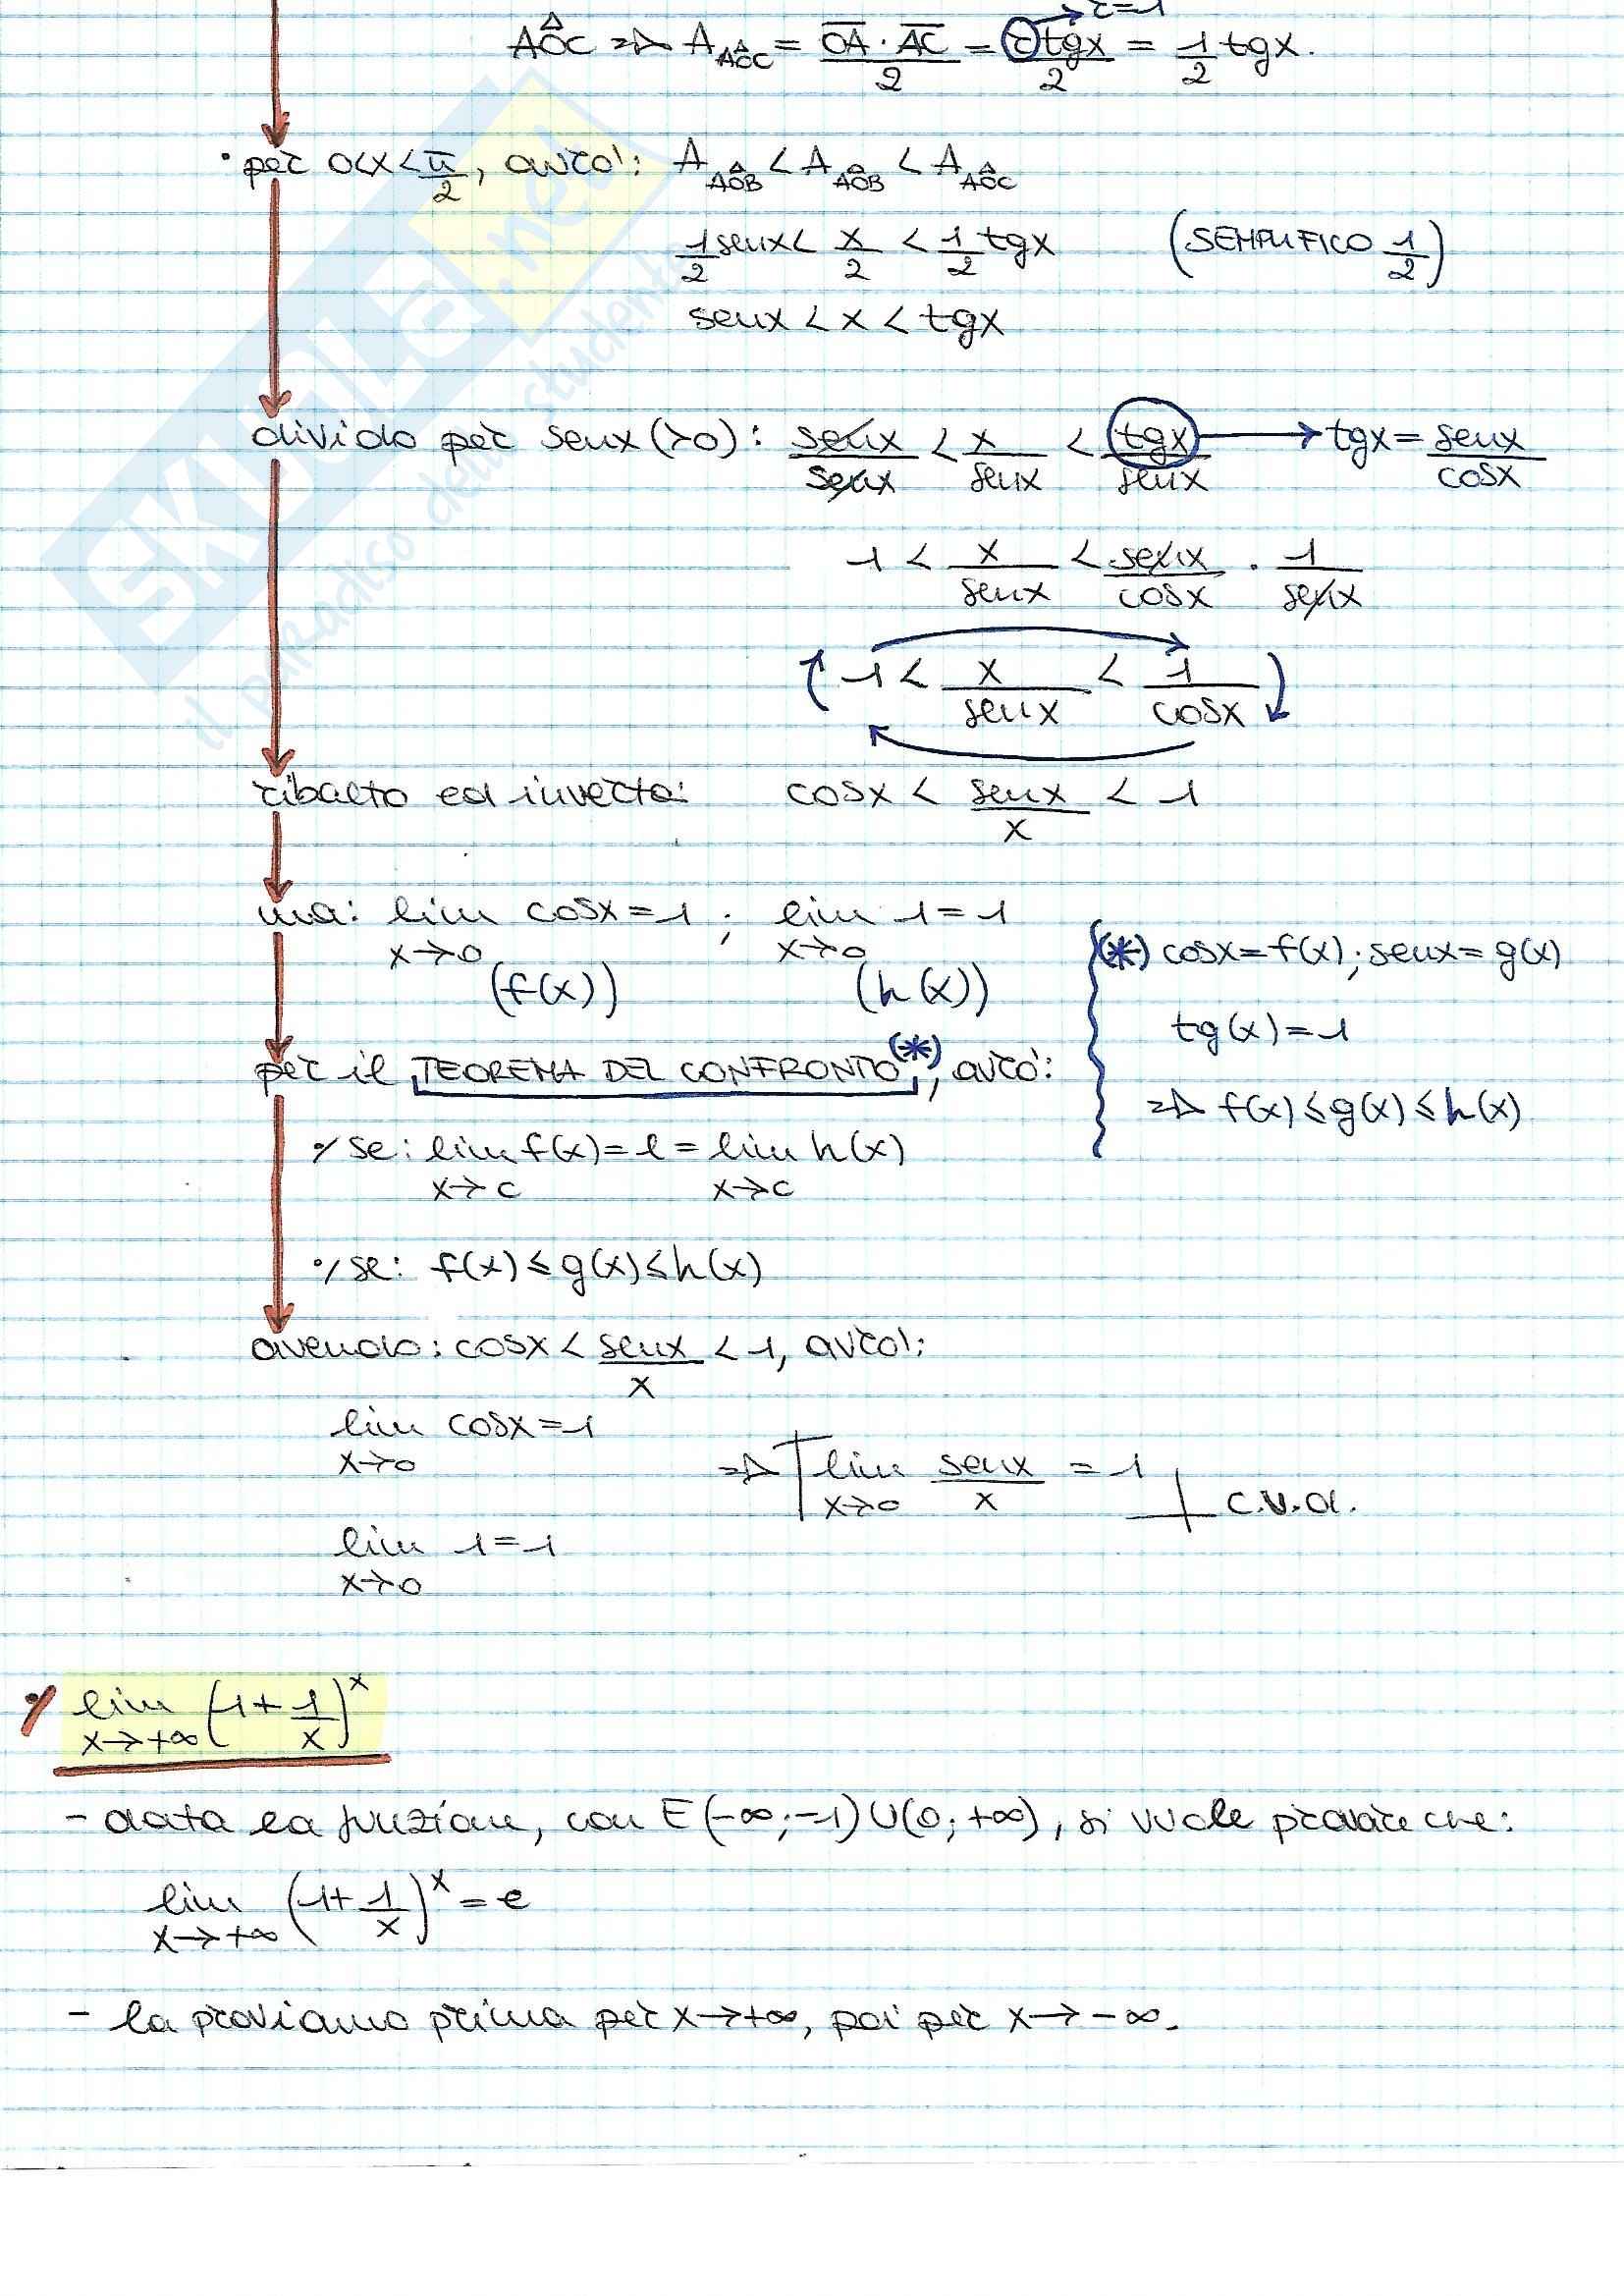 r=1
AÔC => A_AÔC = OA · AC / 2 = r tgx / 2 = 1/2 tgx.
• per 0<x<π/2, avrò: A_AÔB < A_AÔB < A_AÔC
1/2 senx < x/2 < 1/2 tgx (SEMPLIFICO 1/2)
senx < x < tgx
divido per senx (>0): senx/senx < x/senx < tgx/senx → tgx = senx/cosx
1 < x/senx < senx/cosx · 1/senx
1 < x/senx < 1/cosx
ribalto ed inverto: cosx < senx/x < 1
ma: lim x→0 cosx = 1 ; lim x→0 1 = 1
(f(x)) (h(x))
(*) cosx = f(x); senx = g(x)
tg(x) = 1
=> f(x) ≤ g(x) ≤ h(x)
per il TEOREMA DEL CONFRONTO (*), avrò:
•/ se: lim x→c f(x) = l = lim x→c h(x)
•/ se: f(x) ≤ g(x) ≤ h(x)
avendo: cosx < senx/x < 1, avrò:
lim x→0 cosx = 1
=> lim x→0 senx/x = 1 c.v.d.
lim x→0 1 = 1
•/ lim x→+∞ (1 + 1/x)^x
- data la funzione, con E (-∞;-1) U (0;+∞), si vuole provare che:
lim x→+∞ (1 + 1/x)^x = e
- la proviamo prima per x→+∞, poi per x→-∞.
SKUOLA.net
il paradiso dello studente